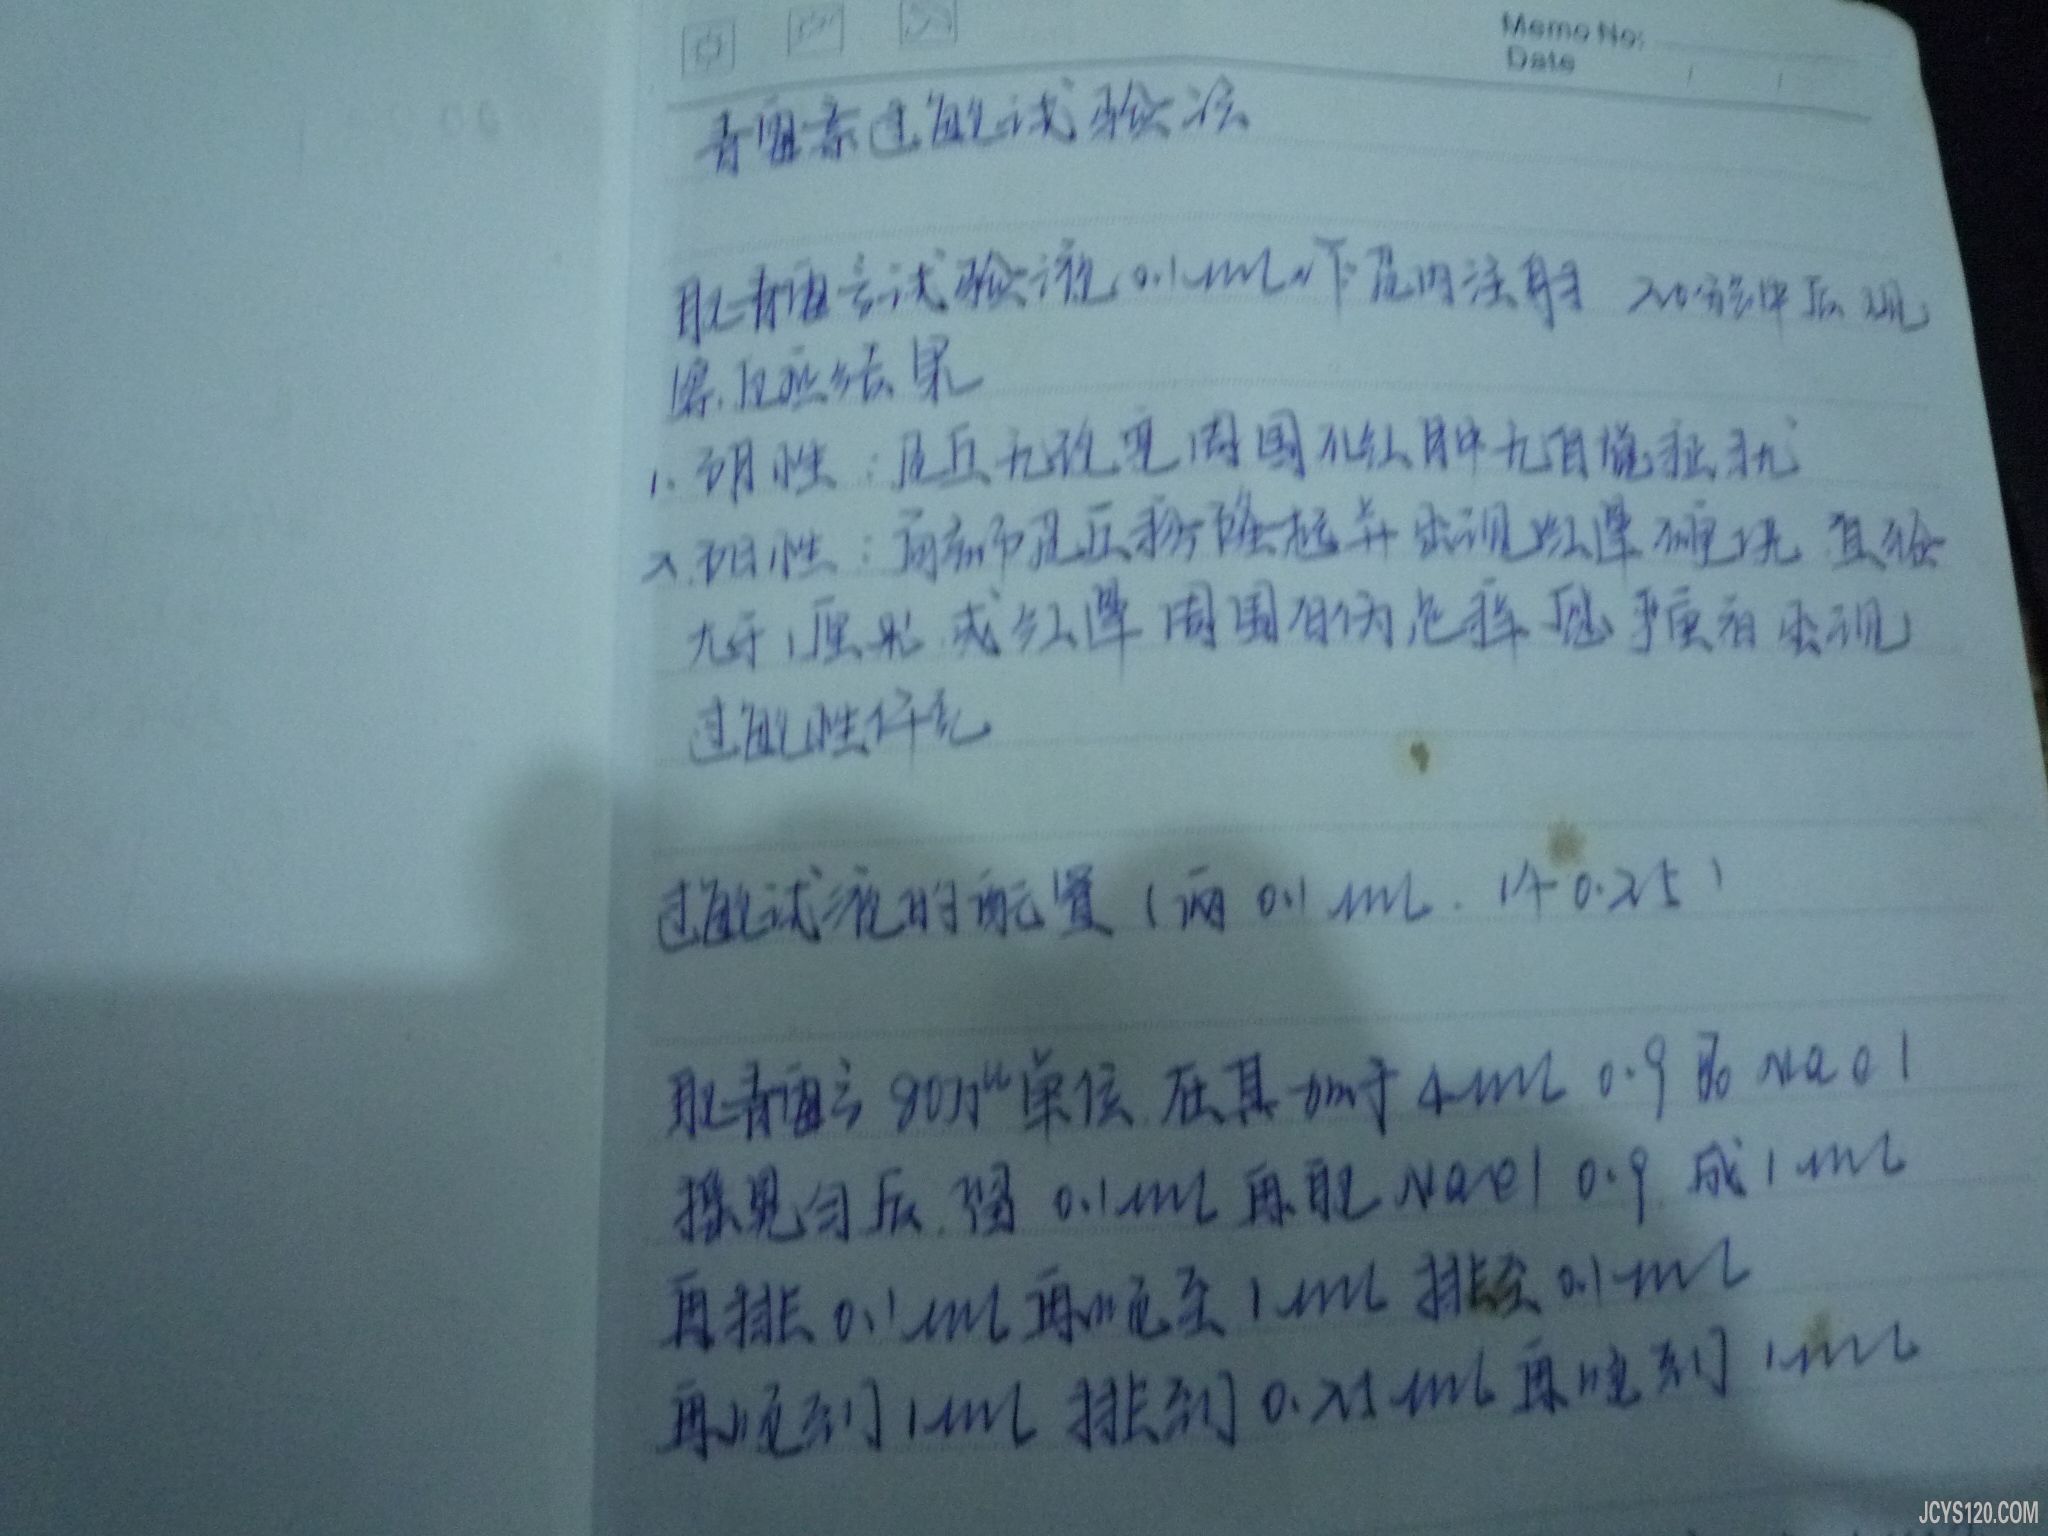 Memo No:
Date
青霉素过敏试验法
取青霉素试验液 0.1ml 下皮内注射 20分钟后观
察反应结果
1. 阴性：皮丘无改变周围不红肿无自觉症状
2. 阳性：局部皮丘隆起并出现红晕硬块 直径
大于1厘米 或红晕周围有伪足 痒 严重者出现
过敏性休克
过敏试液的配置（两 0.1ml. 1个 0.25）
取青霉素 80万u单位 在其加于 4ml 0.9 的 Nacl
摇晃匀后 留 0.1ml 再取 Nacl 0.9 成 1ml
再排 0.1ml 再吸至 1ml 排至 0.1ml
再吸到 1ml 排到 0.25ml 再吸到 1ml
JCYS120.COM